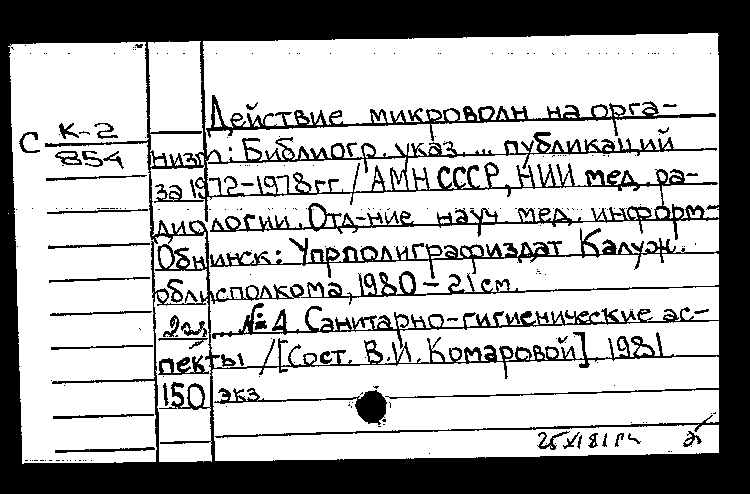 С К-2
854
Действие микроволн на орга-
низм: Библиогр. указ. ... публикаций
за 1972-1978гг. / АМН СССР, НИИ мед. ра-
диологии. Отд-ние науч. мед. информ.-
Обнинск: Упрполиграфиздат Калуж.
облисполкома, 1980 - 21 см.
... №4. Санитарно-гигиенические ас-
пекты / [Сост. В.И. Комаровой]. 1981
150 экз.
25 XI 81